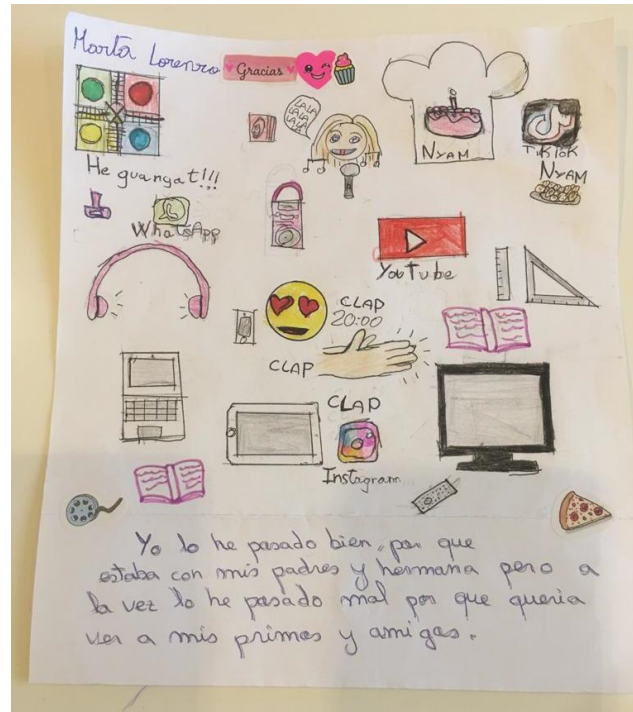 Marta Lorenzo
Gracias
LALA
LALA
LALA
LA
NYAM
TikTok
NYAM
He guanyat!!!
WhatsApp
YouTube
CLAP
20:00
CLAP
CLAP
Instagram
Yo lo he pasado bien, por que
estaba con mis padres y hermana pero a
la vez lo he pasado mal por que queria
ver a mis primos y amigas.